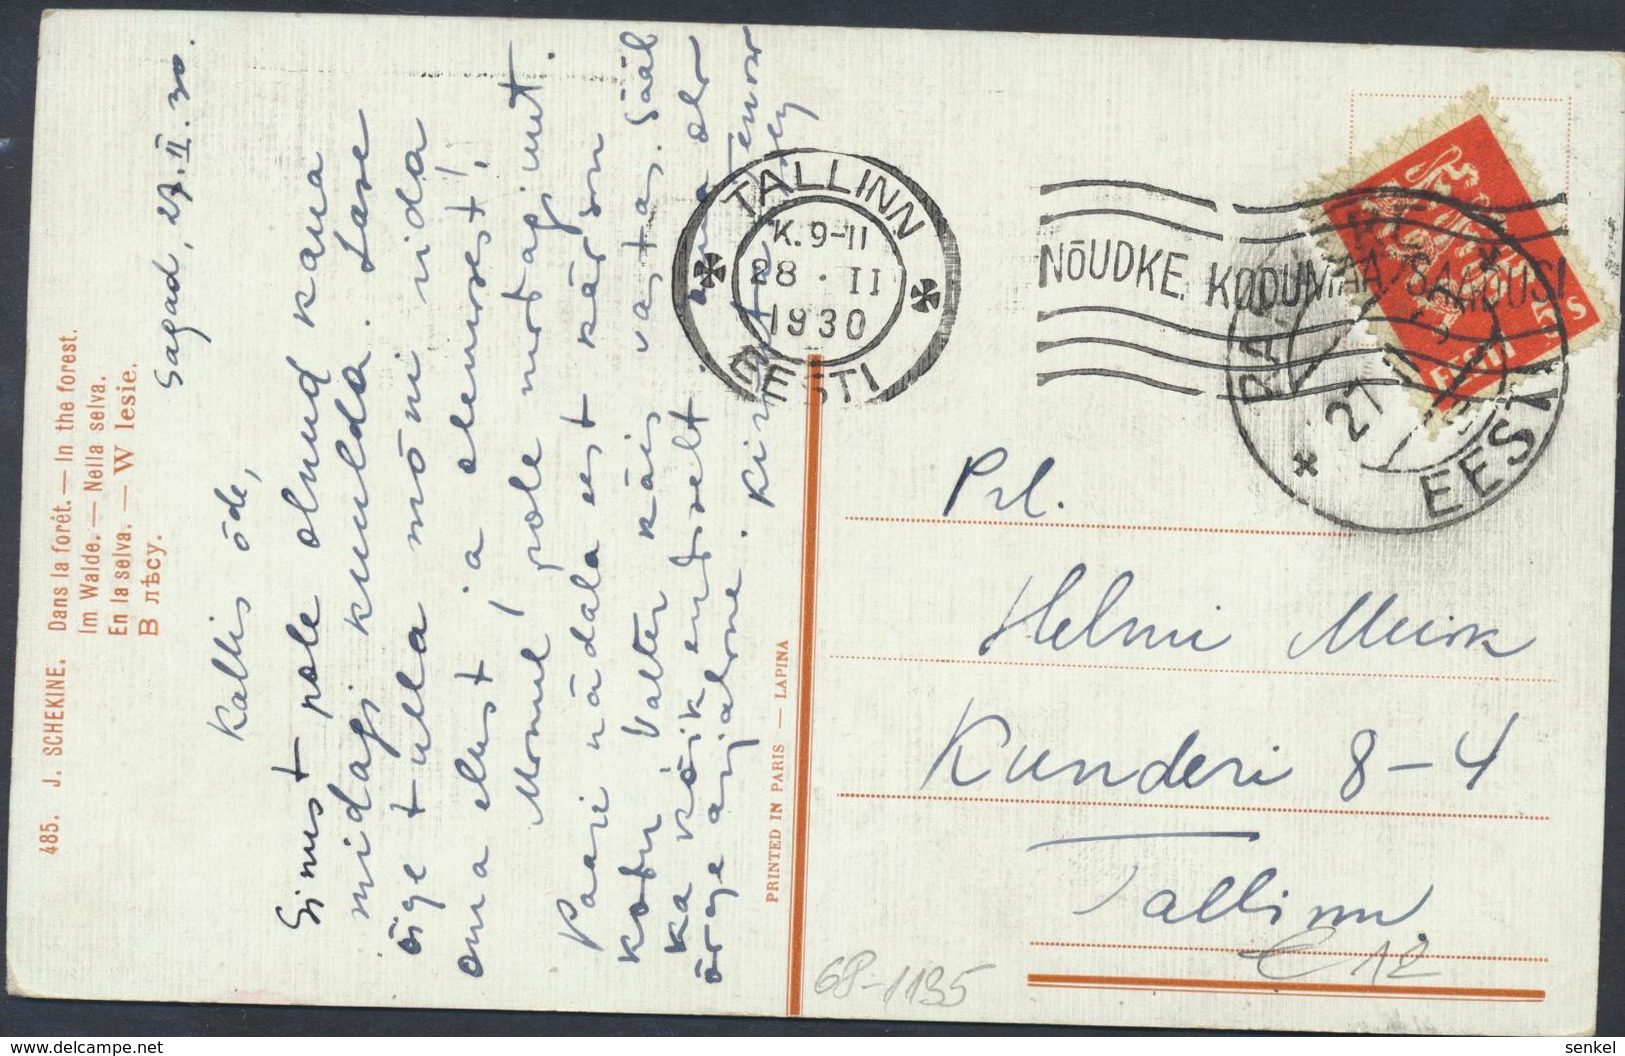 485. J. SCHEKINE. Dans la forêt. — In the forest.
Im Walde. — Nella selva.
En la selva. — W lesie.
В лѣсу.
Sagad, 27.II.30.
Kallis õde,
Sinust pole olnud kaua
midagi kuulda. Lase
õige tulla mõni rida
oma elust ja olemusest!
Momul pole midagi uut.
Paari nädala eest käisin
kodu Valter käis vastas. Sääl
ka kõik endiselt. olr
ärge
Kirjuta
PRINTED IN PARIS — LAPINA
TALLINN
K. 9-11
28 · II
1930
EESTI
NÕUDKE KODUMAA SAADUSI
EESTI
27
EESTI
Prl.
Helmi Meisk
Kunderi 8-4
Tallinn,
€12
68-1195
senkel
delcampe.net